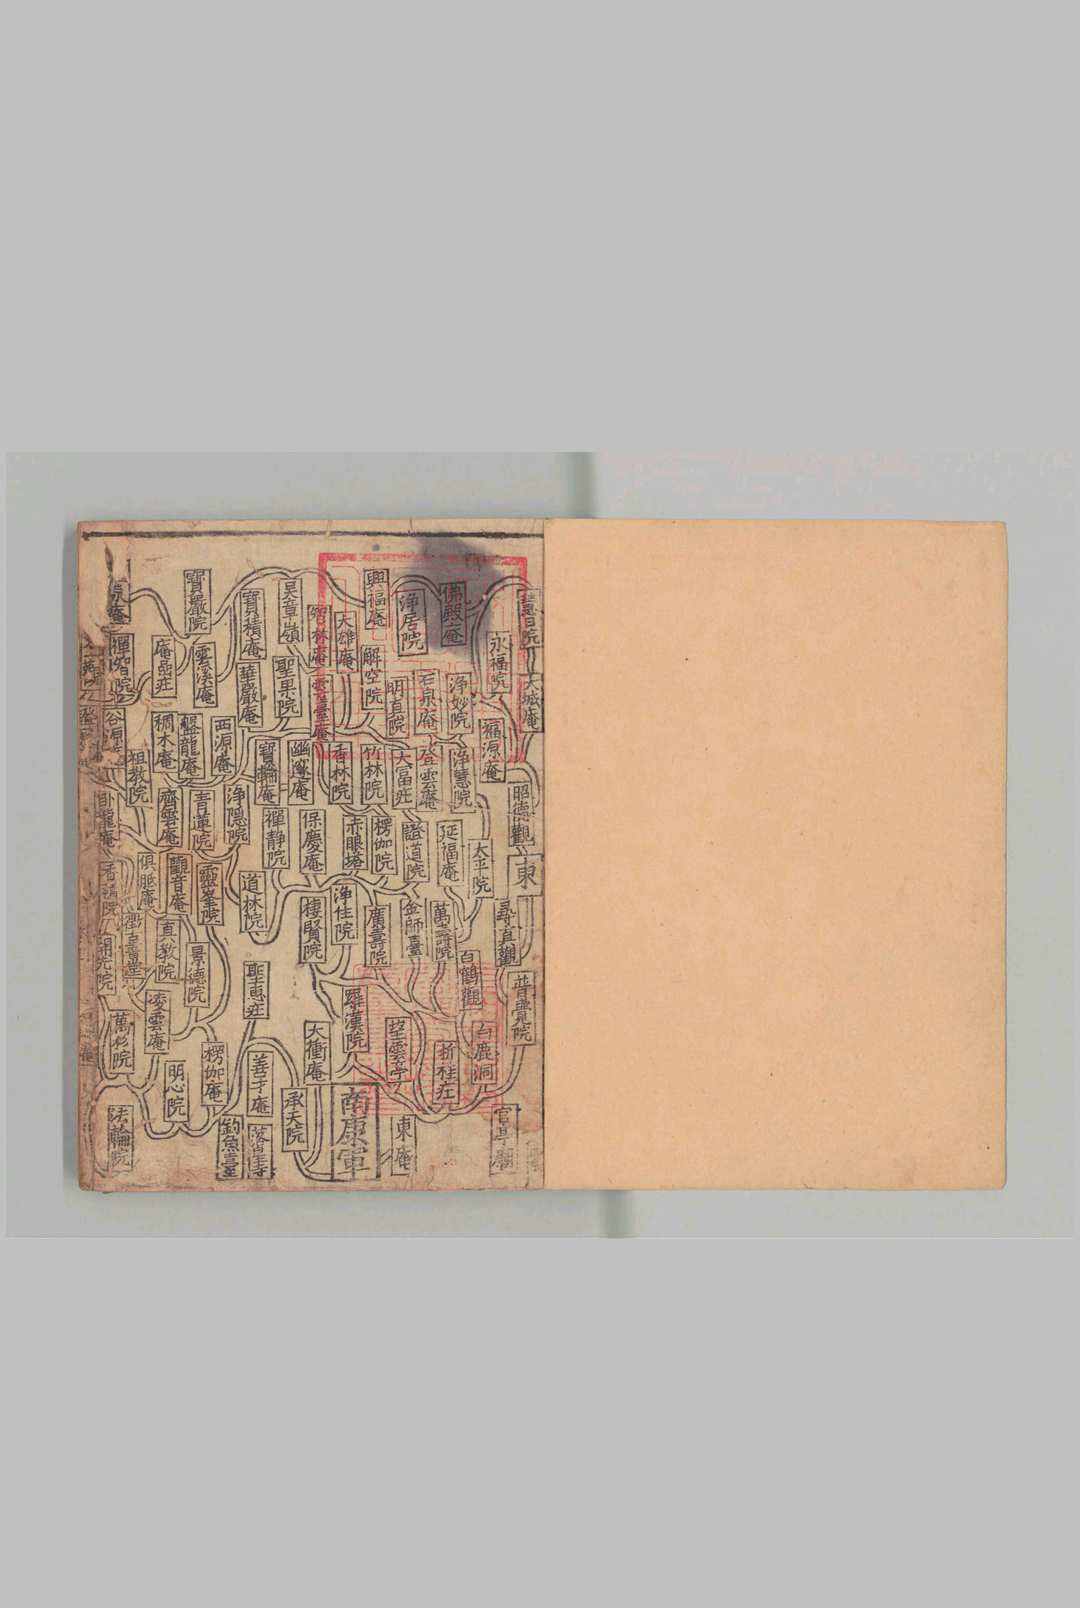 慧日院
天城庵
永福院
佛殿庵
淨居院
興福庵
大雄庵
吳章嶺
寶積庵
寶嚴院
禪智院
淨妙院
石泉庵
明直院
解空院
雲臺庵
聖果院
華嚴庵
雲溪庵
福源庵
淨慧院
登雲庵
大富莊
竹林院
香林院
幽邃庵
寶輪庵
西源庵
盤龍庵
稠木庵
祖教院
昭德觀
東
太平院
延福庵
證道院
楞伽院
赤眼塔
保慶庵
禪靜院
淨隱院
青蓮院
齊雲庵
臥龍庵
尋真觀
萬壽院
金師臺
廣壽院
淨住院
棲賢院
道林院
靈峯院
觀音庵
普覺院
白鶴觀
真教院
景德院
開先院
白鹿洞
折桂莊
望雲亭
羅漢院
大衝庵
聖惠莊
凌雲庵
萬杉院
官亭廟
東庵
南康軍
承天院
善才庵
落星寺
楞伽庵
釣魚臺
明心院
法輪院